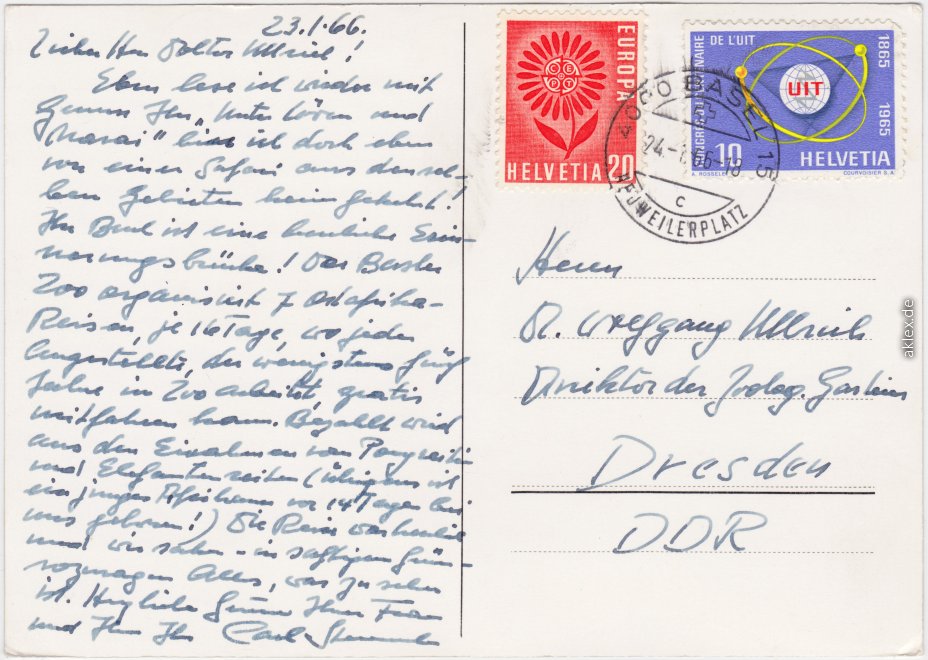 23.1.66.
Lieber Herr Doktor Ullrich!
Eben lese ich wieder mit
Genuss Ihr „Unter Löwen und
Massai" bin ich doch eben
von einer Safari aus densel-
ben Gebieten heim gekehrt!
Ihr Buch ist eine herrliche Erin-
nerungsbrücke! Der Basler
Zoo organisiert 7 Ostafrika-
Reisen, je 16 Tage, wo jeder
Angestellte, der wenigstens fünf
Jahre im Zoo arbeitet, gratis
mitfahren kann. Bezahlt wird
aus den Einnahmen von Ponyreiten
und Elefantenreiten (übrigens ist
ein junges Afrikaner vor 14 Tagen bei
uns geboren!) Die Reise war herrlich
und wir sahen - in saftigem Grün -
sozusagen Alles, was zu sehen
ist. Herzliche Grüsse Ihrer Frau
und Ihnen Ihr Carl
EUROPA
CEPT
HELVETIA 20
DE L'UIT
1865 1965
UIT
10 HELVETIA
A. ROSSELET COURVOISIER S.A.
BASEL 15
24.-1.66-18
c
NEUWEILERPLATZ
Herrn
Dr. Wolfgang Ullrich
Direktor der Zoolog. Gartens
Dresden
DDR
aklex.de